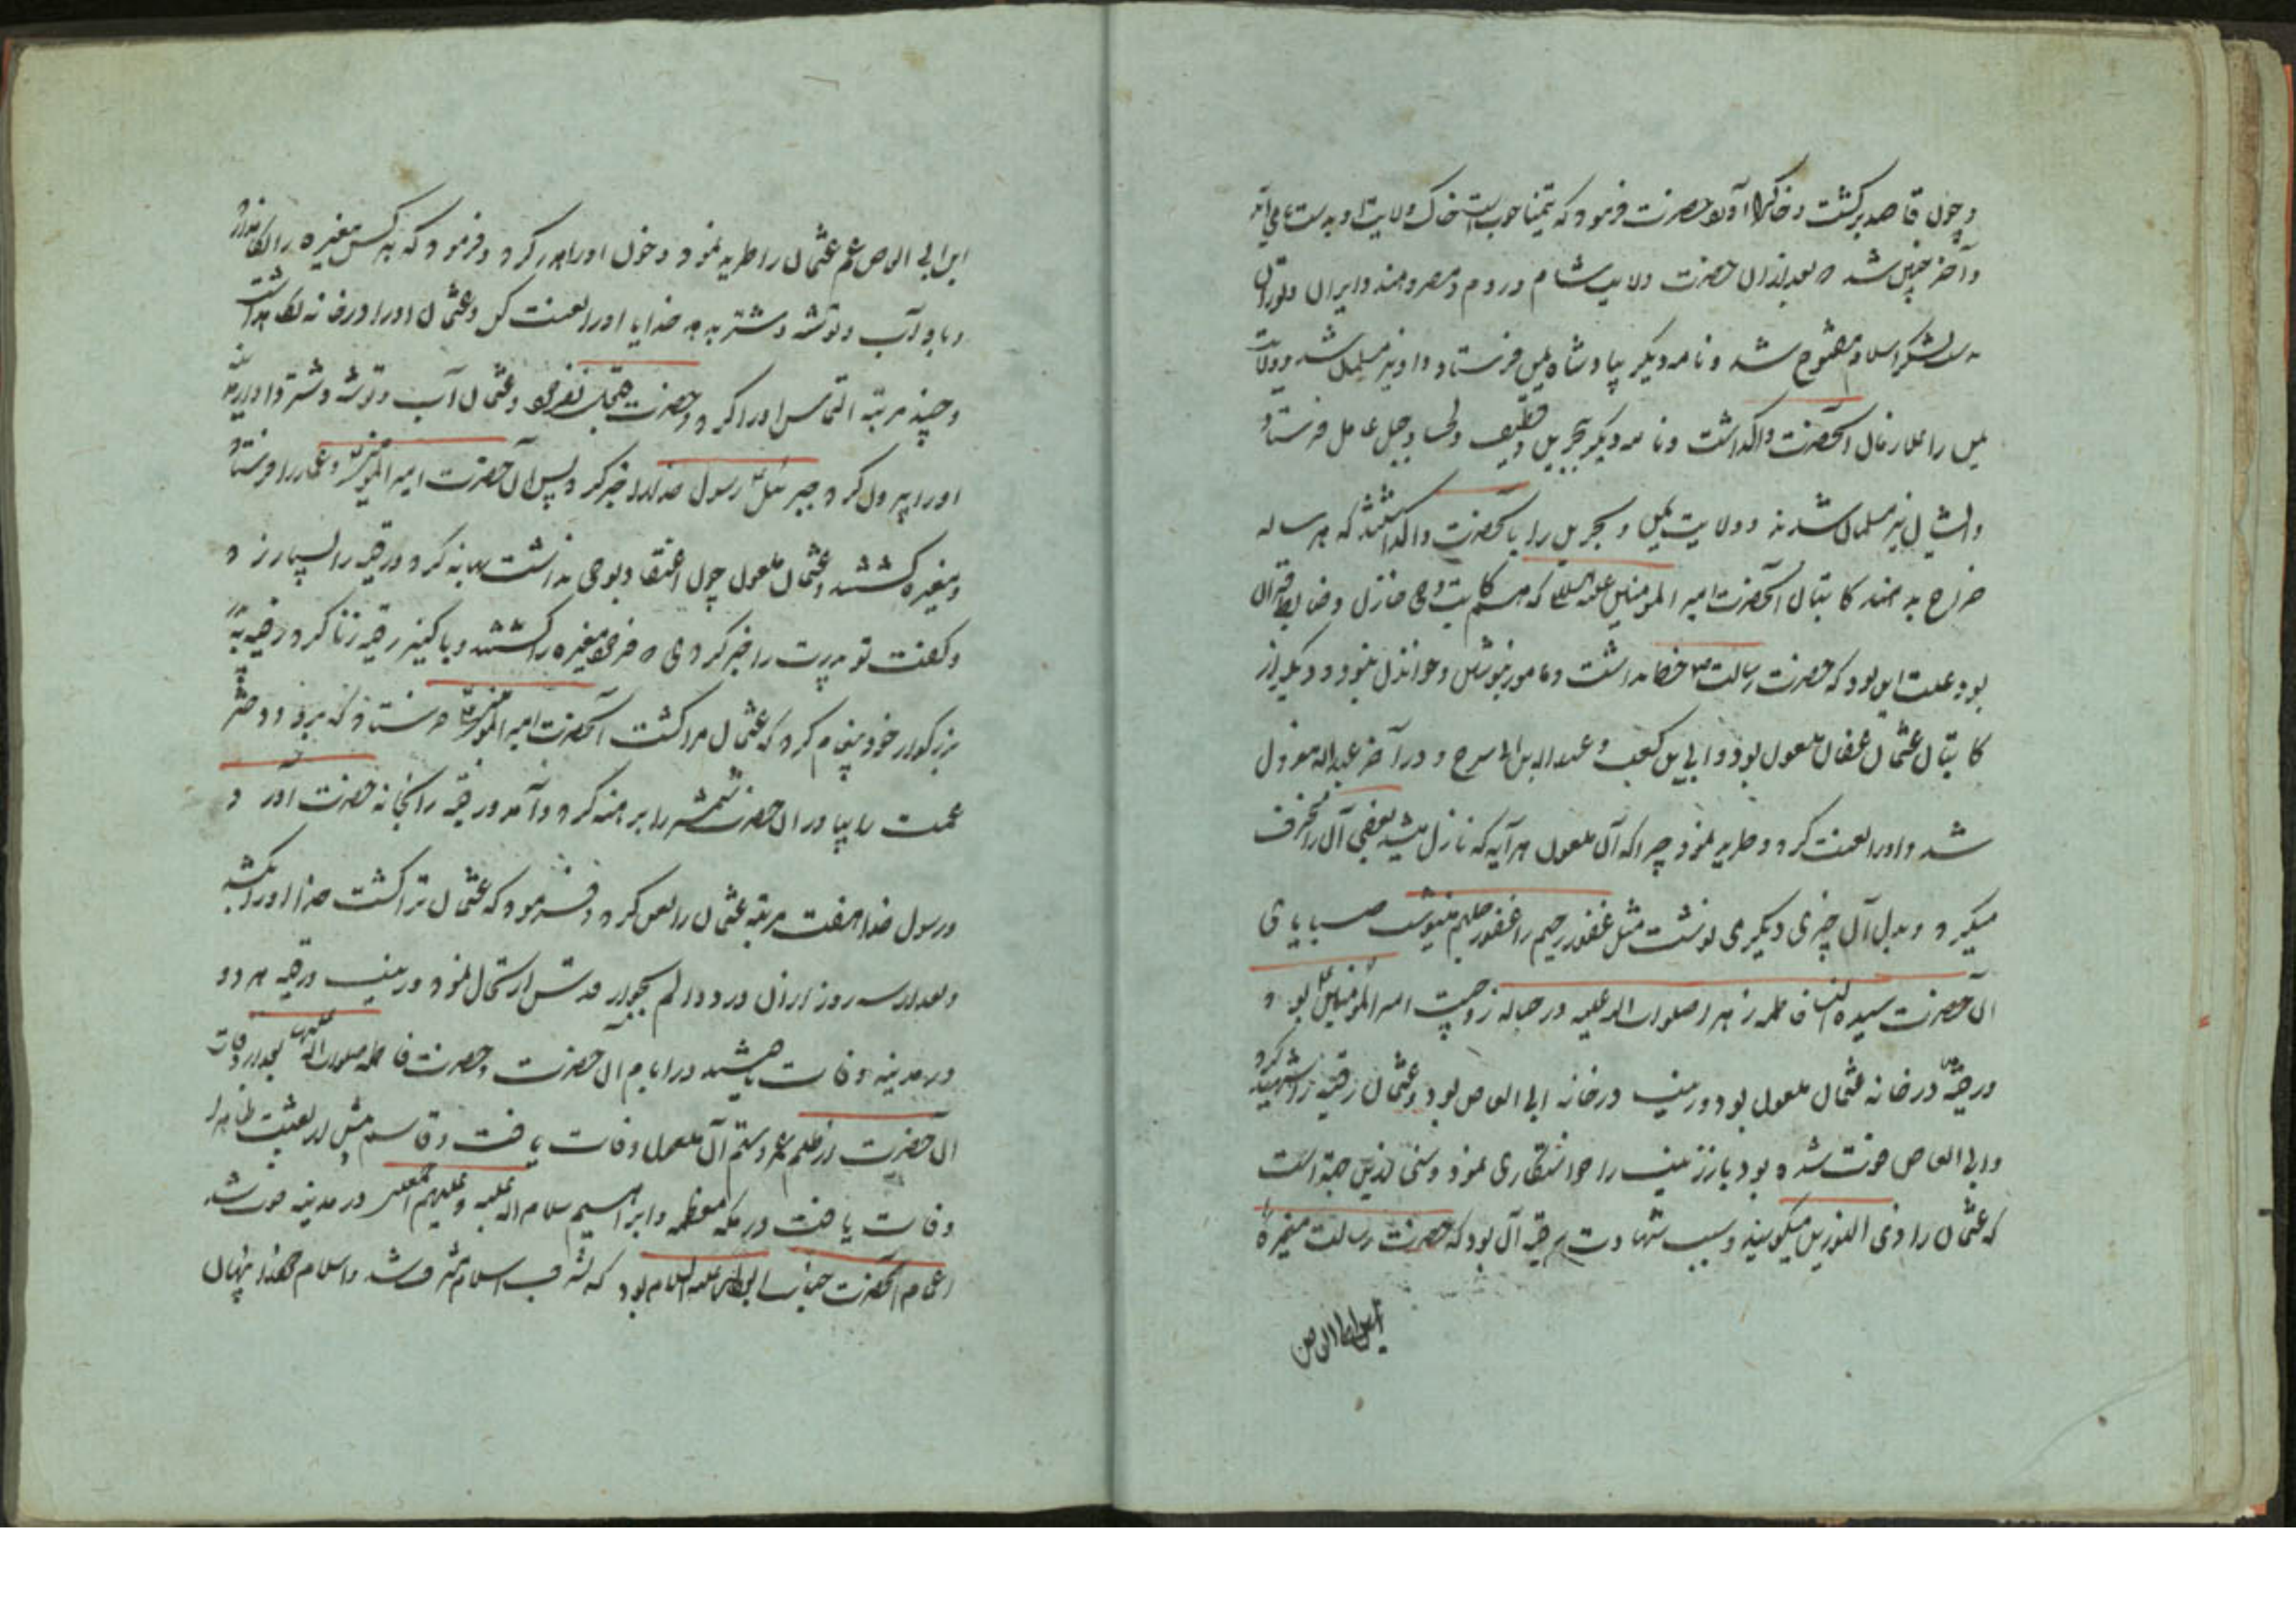 و چون قاصد برگشت و خاک را آورد حضرت فرمود که تیمنا خوب است خاک ولایت او بدست می آید
و آخر چنین شد بعد از ان حضرت ولایت شام و روم و مصر و هند و ایران و توران
لشکر اسلام مفتوح شد و نامه دیگر بپادشاه یمن فرستاد و او نیز مسلمان شد و ولایت
یمن را بملازمان آنحضرت واگذاشت و نامه دیگر ببحرین و قطیف و لحسا و جبل عامل فرستاد
و ایشان نیز مسلمان شدند و ولایت یمن و بحرین را بآنحضرت واگذاشتند که هر ساله
خراج بدهند کاتبان آنحضرت امیر المومنین علیه السلام که هم کاتب وحی منازل و ضابط قرآن
بود علت این بود که حضرت رسالت خط نداشت و مامور بنوشتن و خواندن نبود و دیگر از
کاتبان عثمان عفان ملعون بود و ابی بن کعب و عبد الله بن ابی سرح و در آخر عبد الله معزول
شد و او را لعنت کرد و طرید نمود چرا که آن ملعون هر آیه که نازل میشد بعضی آن را تحریف
میکرد و بدل آن چیزی دیگری نوشت مثل غفور رحیم را غفور حلیم مینوشت
آن حضرت سیدة النسا فاطمه زهرا صلوات الله علیه در حباله زوجیت امیر المؤمنین بود و
و رقیه در خانه عثمان ملعون بود و زینب در خانه ابی العاص بود و عثمان رقیه را شهید کرد
و ابی العاص فوت شده بود باز زینب را خواستگاری نمود و سنی بدین جهة است
که عثمان را ذی النورین میگویند و سبب شهادت رقیه آن بود که حضرت رسالت مغیرة
ابن ابی العاص
ابن ابی العاص عم عثمان را طرید نمود و خون او را هدر کرد و فرمود که هر کس مغیره را نگاهدارد
و باو آب و توشه و شتر بدهد خدایا او را لعنت کن و عثمان او را در خانه نگاهداشت
و چند مرتبه التماس او را کرد و حضرت هیچ نفرمود و عثمان آب و توشه و شتر داد
او را بیرون کرد و جبرئیل رسول خدا را خبر کرد پس آن حضرت امیر المؤمنین و عمار را فرستاد
و مغیره کشتند و عثمان ملعون چون اعتقاد بوحی نداشت بهانه کرد و رقیه را بسیار زد
و گفت تو پدرت را خبر کردی مغیره را کشتند و با کنیز رقیه زنا کرد و رقیه به
بزرگوار خود پیغام کرد که عثمان مرا کشت آنحضرت امیر المؤمنین فرستاد که برو و دختر
عمت را بیاور آن حضرت شمشیر را برهنه کرد و آمد و رقیه را بخانه حضرت آورد
و رسول خدا هفت مرتبه عثمان را لعن کرد و فرمود که عثمان ترا کشت خدا او را بکشد
و بعد از سه روز از آن درد و الم بجوار قدس ارتحال نمود و زینب و رقیه هر دو
در مدینه وفات یافتند در ایام آن حضرت و حضرت فاطمه صلوات الله علیها بعد از وفات
آن حضرت از ظلم عمر و ستم آن ملعون وفات یافت و قاسم پیش از بعثت
وفات یافت در مکه معظمه و ابراهیم سلام الله علیه و علیهم اجمعین در مدینه فوت شد
اعمام آنحضرت جناب ابوطالب علیه السلام بود که بشرف اسلام مشرف شد و اسلام خود را پنهان